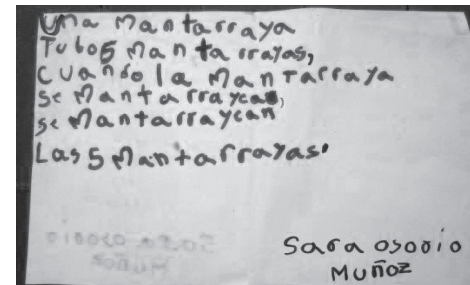 Una Mantarraya
Tubo 5 Mantarrayas,
Cuando la Mantarraya
se Mantarraycan,
se Mantarraycan
Las 5 Mantarrayas.
Sara osorio
Muñoz